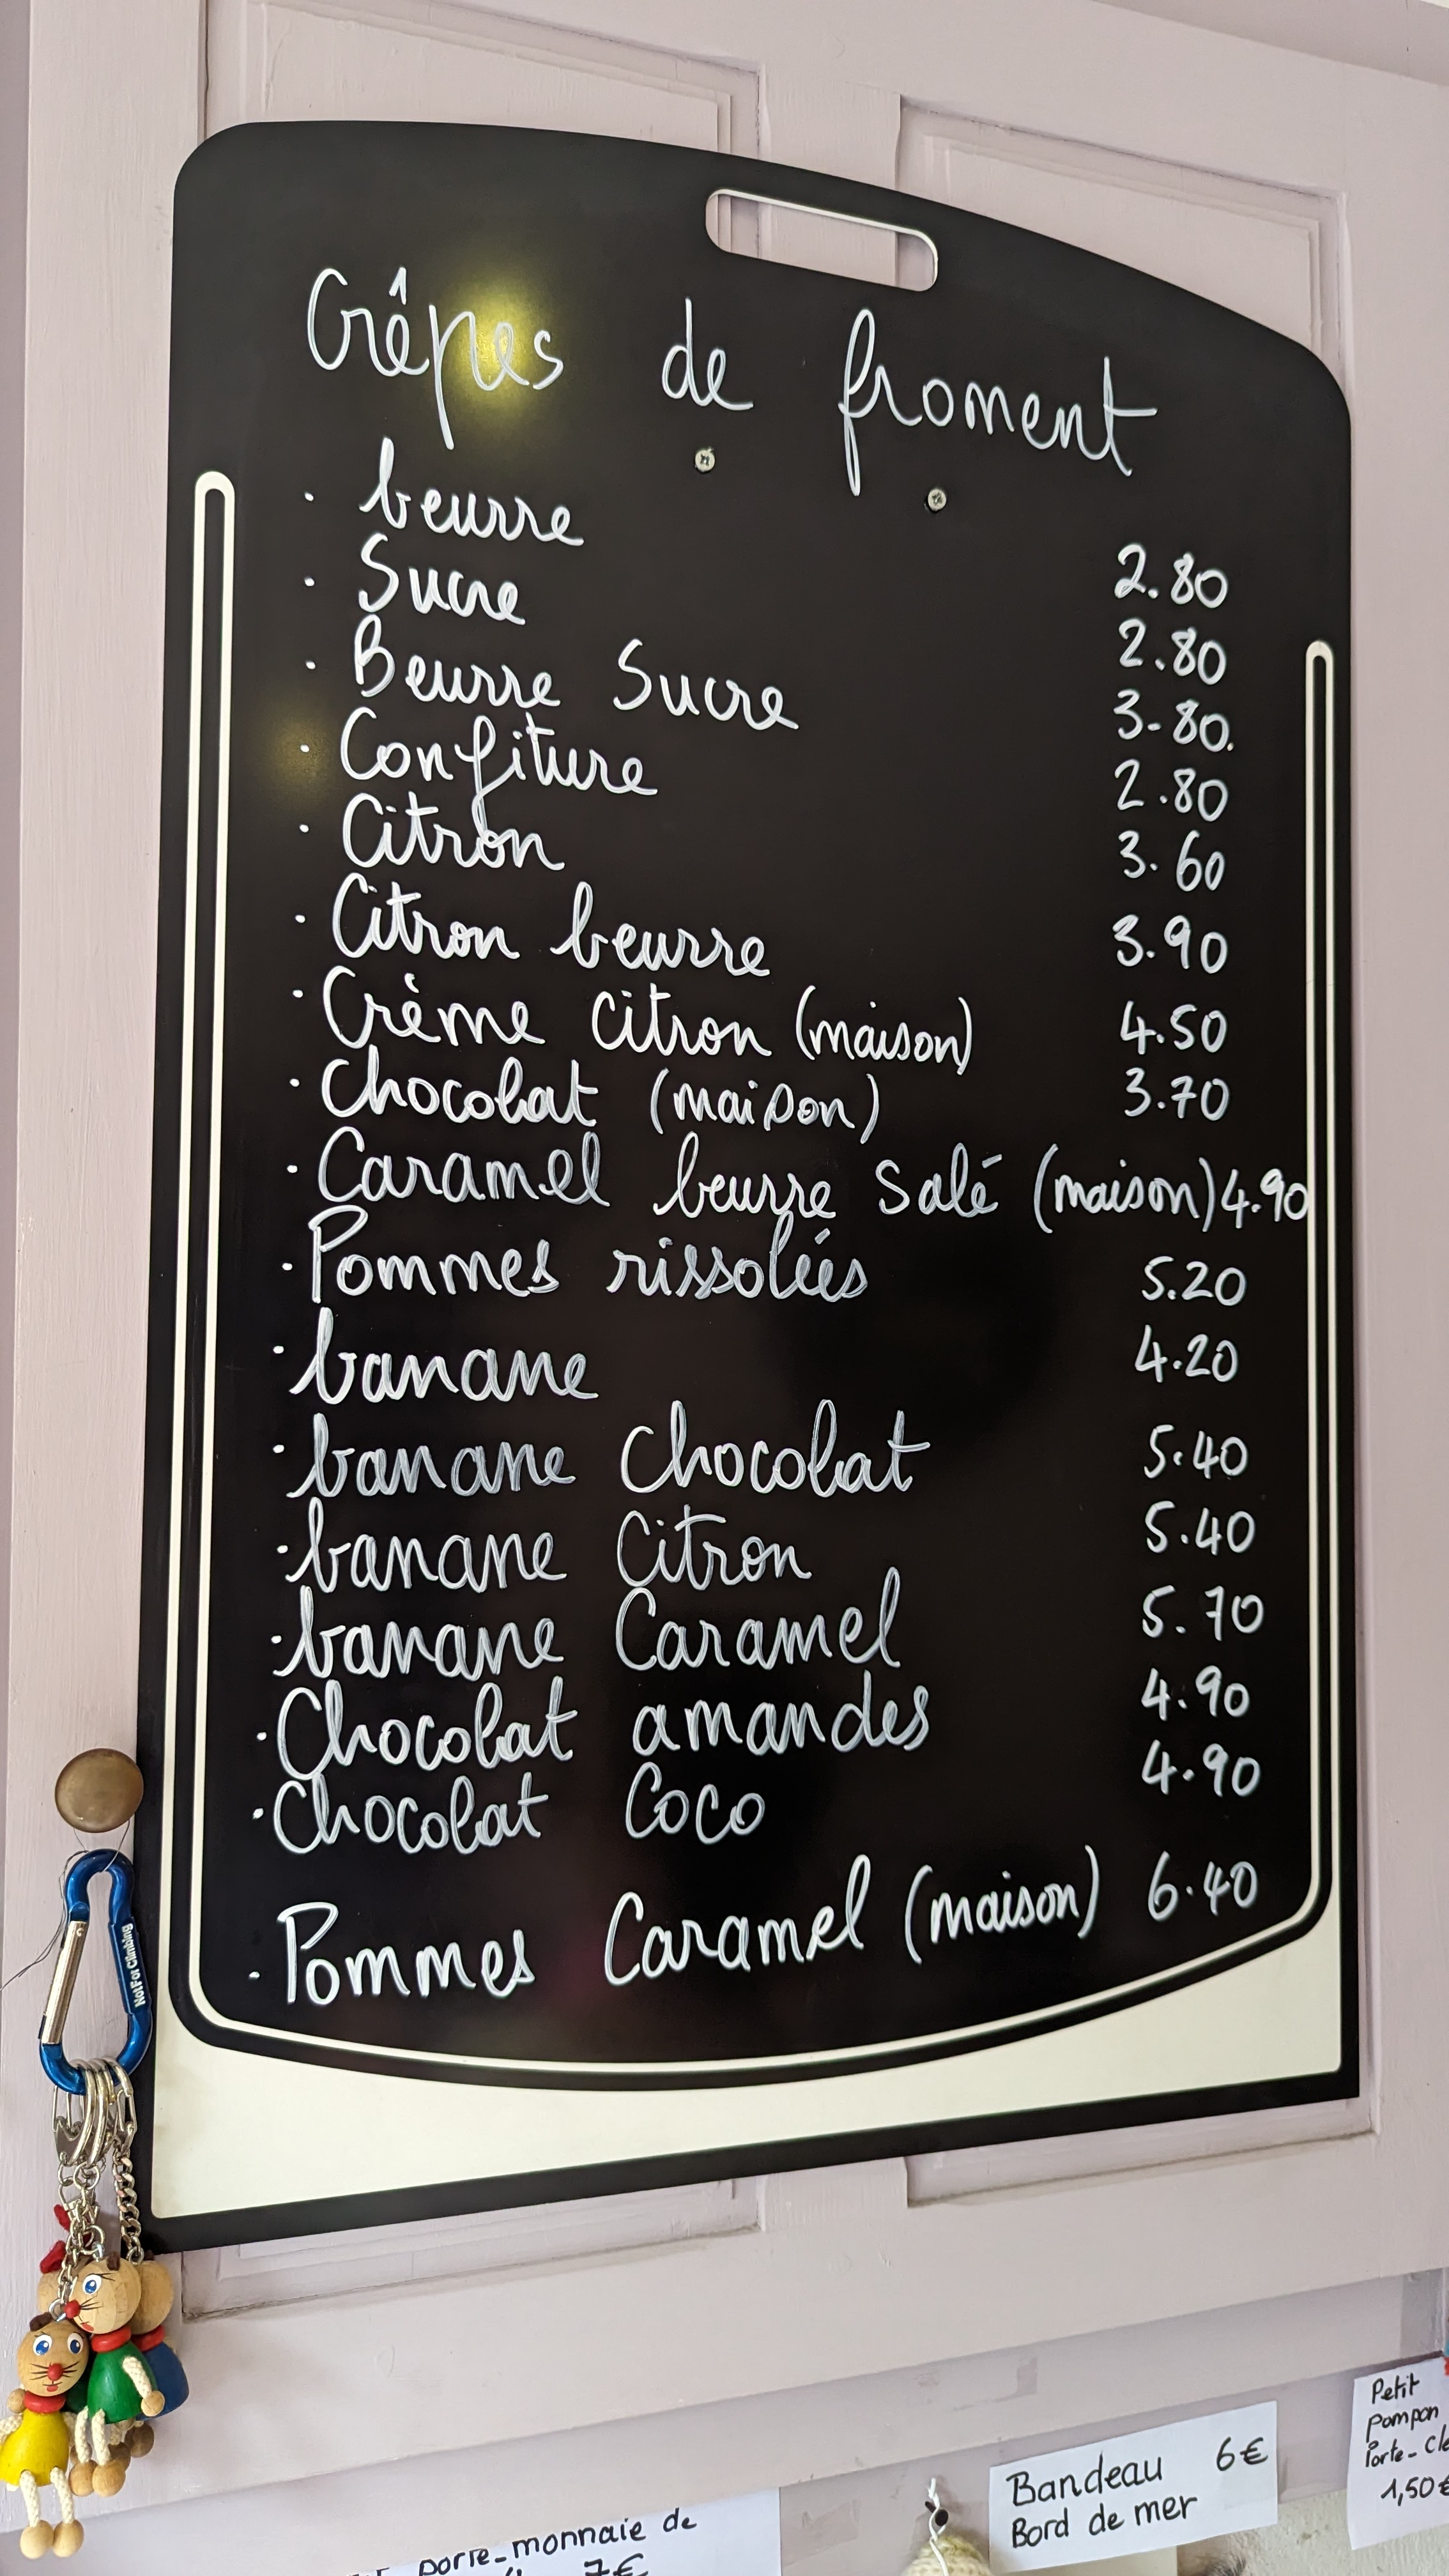 Crêpes de froment
· beurre 2.80
· Sucre 2.80
· Beurre Sucre 3-80.
· Confiture 2.80
· Citron 3.60
· Citron beurre 3.90
· Crème citron (maison) 4.50
· Chocolat (maison) 3.70
· Caramel beurre salé (maison) 4.90
· Pommes rissolées 5.20
· banane 4.20
· banane chocolat 5.40
· banane Citron 5.40
· banane Caramel 5.70
· Chocolat amandes 4.90
· Chocolat Coco 4.90
· Pommes Caramel (maison) 6.40
Not For Climbing
Bandeau 6€
Bord de mer
Petit
pompon
Porte-clé
1,50€
porte-monnaie de
7€